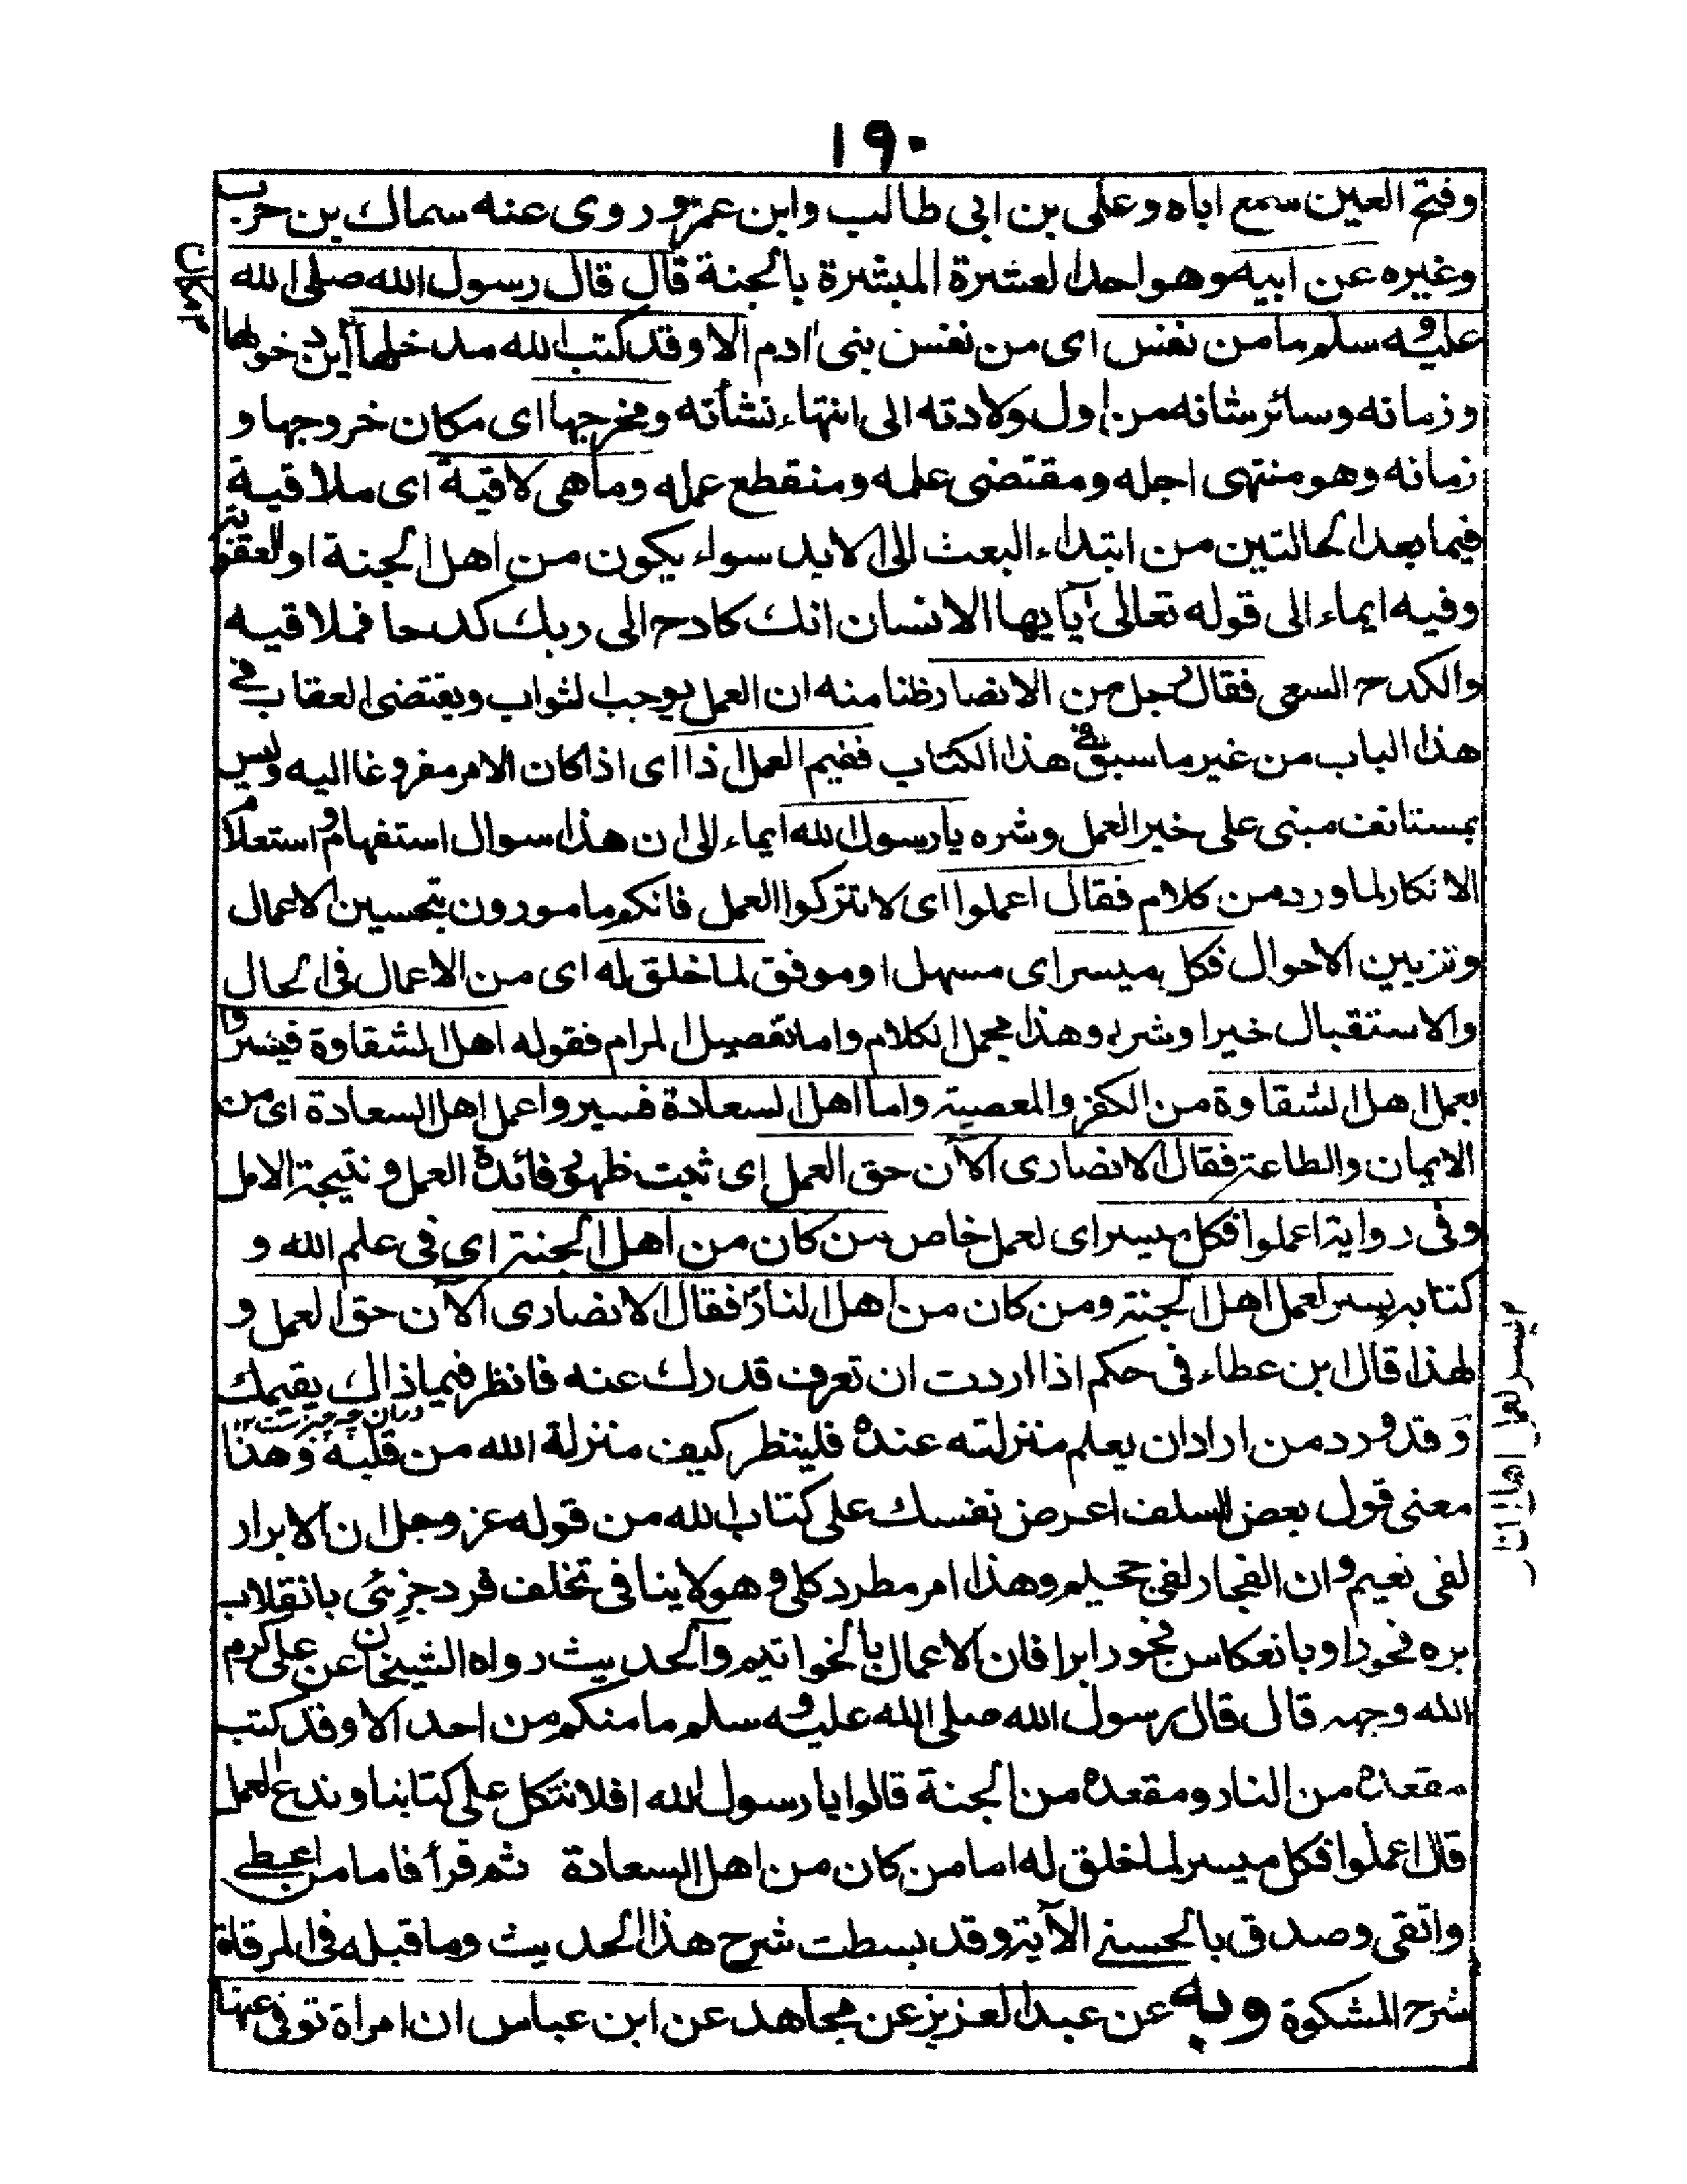 ١٩٠
وفتح العين سمع اباه وعلى بن ابى طالب وابن عمر وروى عنه سماك بن حرب
وغيره عن ابيه وهو احد العشرة المبشرة بالجنة قال قال رسول الله صلى الله
عليه وسلم ما من نفس اى من نفس بنى ادم الا وقد كتب الله مدخلها اين دخولها
اى مكان
وزمانه وسائر شانه من اول ولادته الى انتهاء نشأته ومخرجها اى مكان خروجها و
زمانه وهو منتهى اجله ومقتضى علمه ومنقطع عمله وما هى لاقية اى ملاقية
فيما بعد الحالتين من ابتداء البعث الى الابد سواء يكون من اهل الجنة او العقوبة
وفيه ايماء الى قوله تعالى يآايها الانسان انك كادح الى ربك كدحا فملاقيه
والكدح السعى فقال رجل من الانصار ظنا منه ان العمل يوجب الثواب ويقتضى العقاب فى
هذا الباب من غير ما سبق فى هذا الكتاب ففيم العمل اذا اى اذا كان الامر مفروغا اليه وليس
بمستانف مبنى على خير العمل وشره يا رسول الله ايماء الى ان هذا سوال استفهام واستعلام
الانكار لما ورد من كلام فقال اعملوا اى لا تتركوا العمل فانكم مامورون بتحسين الاعمال
وتزيين الاحوال فكل ميسر اى مسهل او موفق لما خلق له اى من الاعمال فى الحال
والاستقبال خيرا وشرا وهذا مجمل الكلام واما تفصيل المرام فقوله اهل الشقاوة فيسروا
بعمل اهل الشقاوة من الكفر والمعصية واما اهل السعادة فسيروا عمل اهل السعادة اى من
الايمان والطاعة فقال الانصارى الآن حق العمل اى ثبت ظهور فائدة العمل ونتيجة الامل
وفى رواية اعملوا فكل ميسر اى لعمل خاص من كان من اهل الجنة اى فى علم الله و
كتابه يسر لعمل اهل الجنة ومن كان من اهل النار فقال الانصارى الآن حق العمل و
يسر لعمل اهل النار
لهذا قال ابن عطاء فى حكم اذا اردت ان تعرف قدرك عنه فانظر فيما ذا لك يقيمك
وقد ورد من اراد ان يعلم منزلته عنده فلينظر كيف منزلة الله من قلبه وهذا
معنى قول بعض السلف اعرض نفسك على كتاب الله من قوله عز وجل ان الابرار
لفى نعيم وان الفجار لفى جحيم وهذا امر مطرد كلى وهو لا ينافى تخلف فرد جزئى بانقلاب
بره فجورا وبانعكاس فجور ابرا فان الاعمال بالخواتيم والحديث رواه الشيخان عن على كرم
الله وجهه قال قال رسول الله صلى الله عليه وسلم ما منكم من احد الا وقد كتب
مقعده من النار ومقعده من الجنة قالوا يا رسول الله افلا نتكل على كتابنا وندع العمل
قال اعملوا فكل ميسر لما خلق له اما من كان من اهل السعادة ثم قرأ فاما من اعطى
واتقى وصدق بالحسنے الآية وقد بسطت شرح هذا الحديث وما قبله فى المرقاة
شرح المشكوة وبه عن عبد العزيز عن مجاهد عن ابن عباس ان امراة توفى عنها